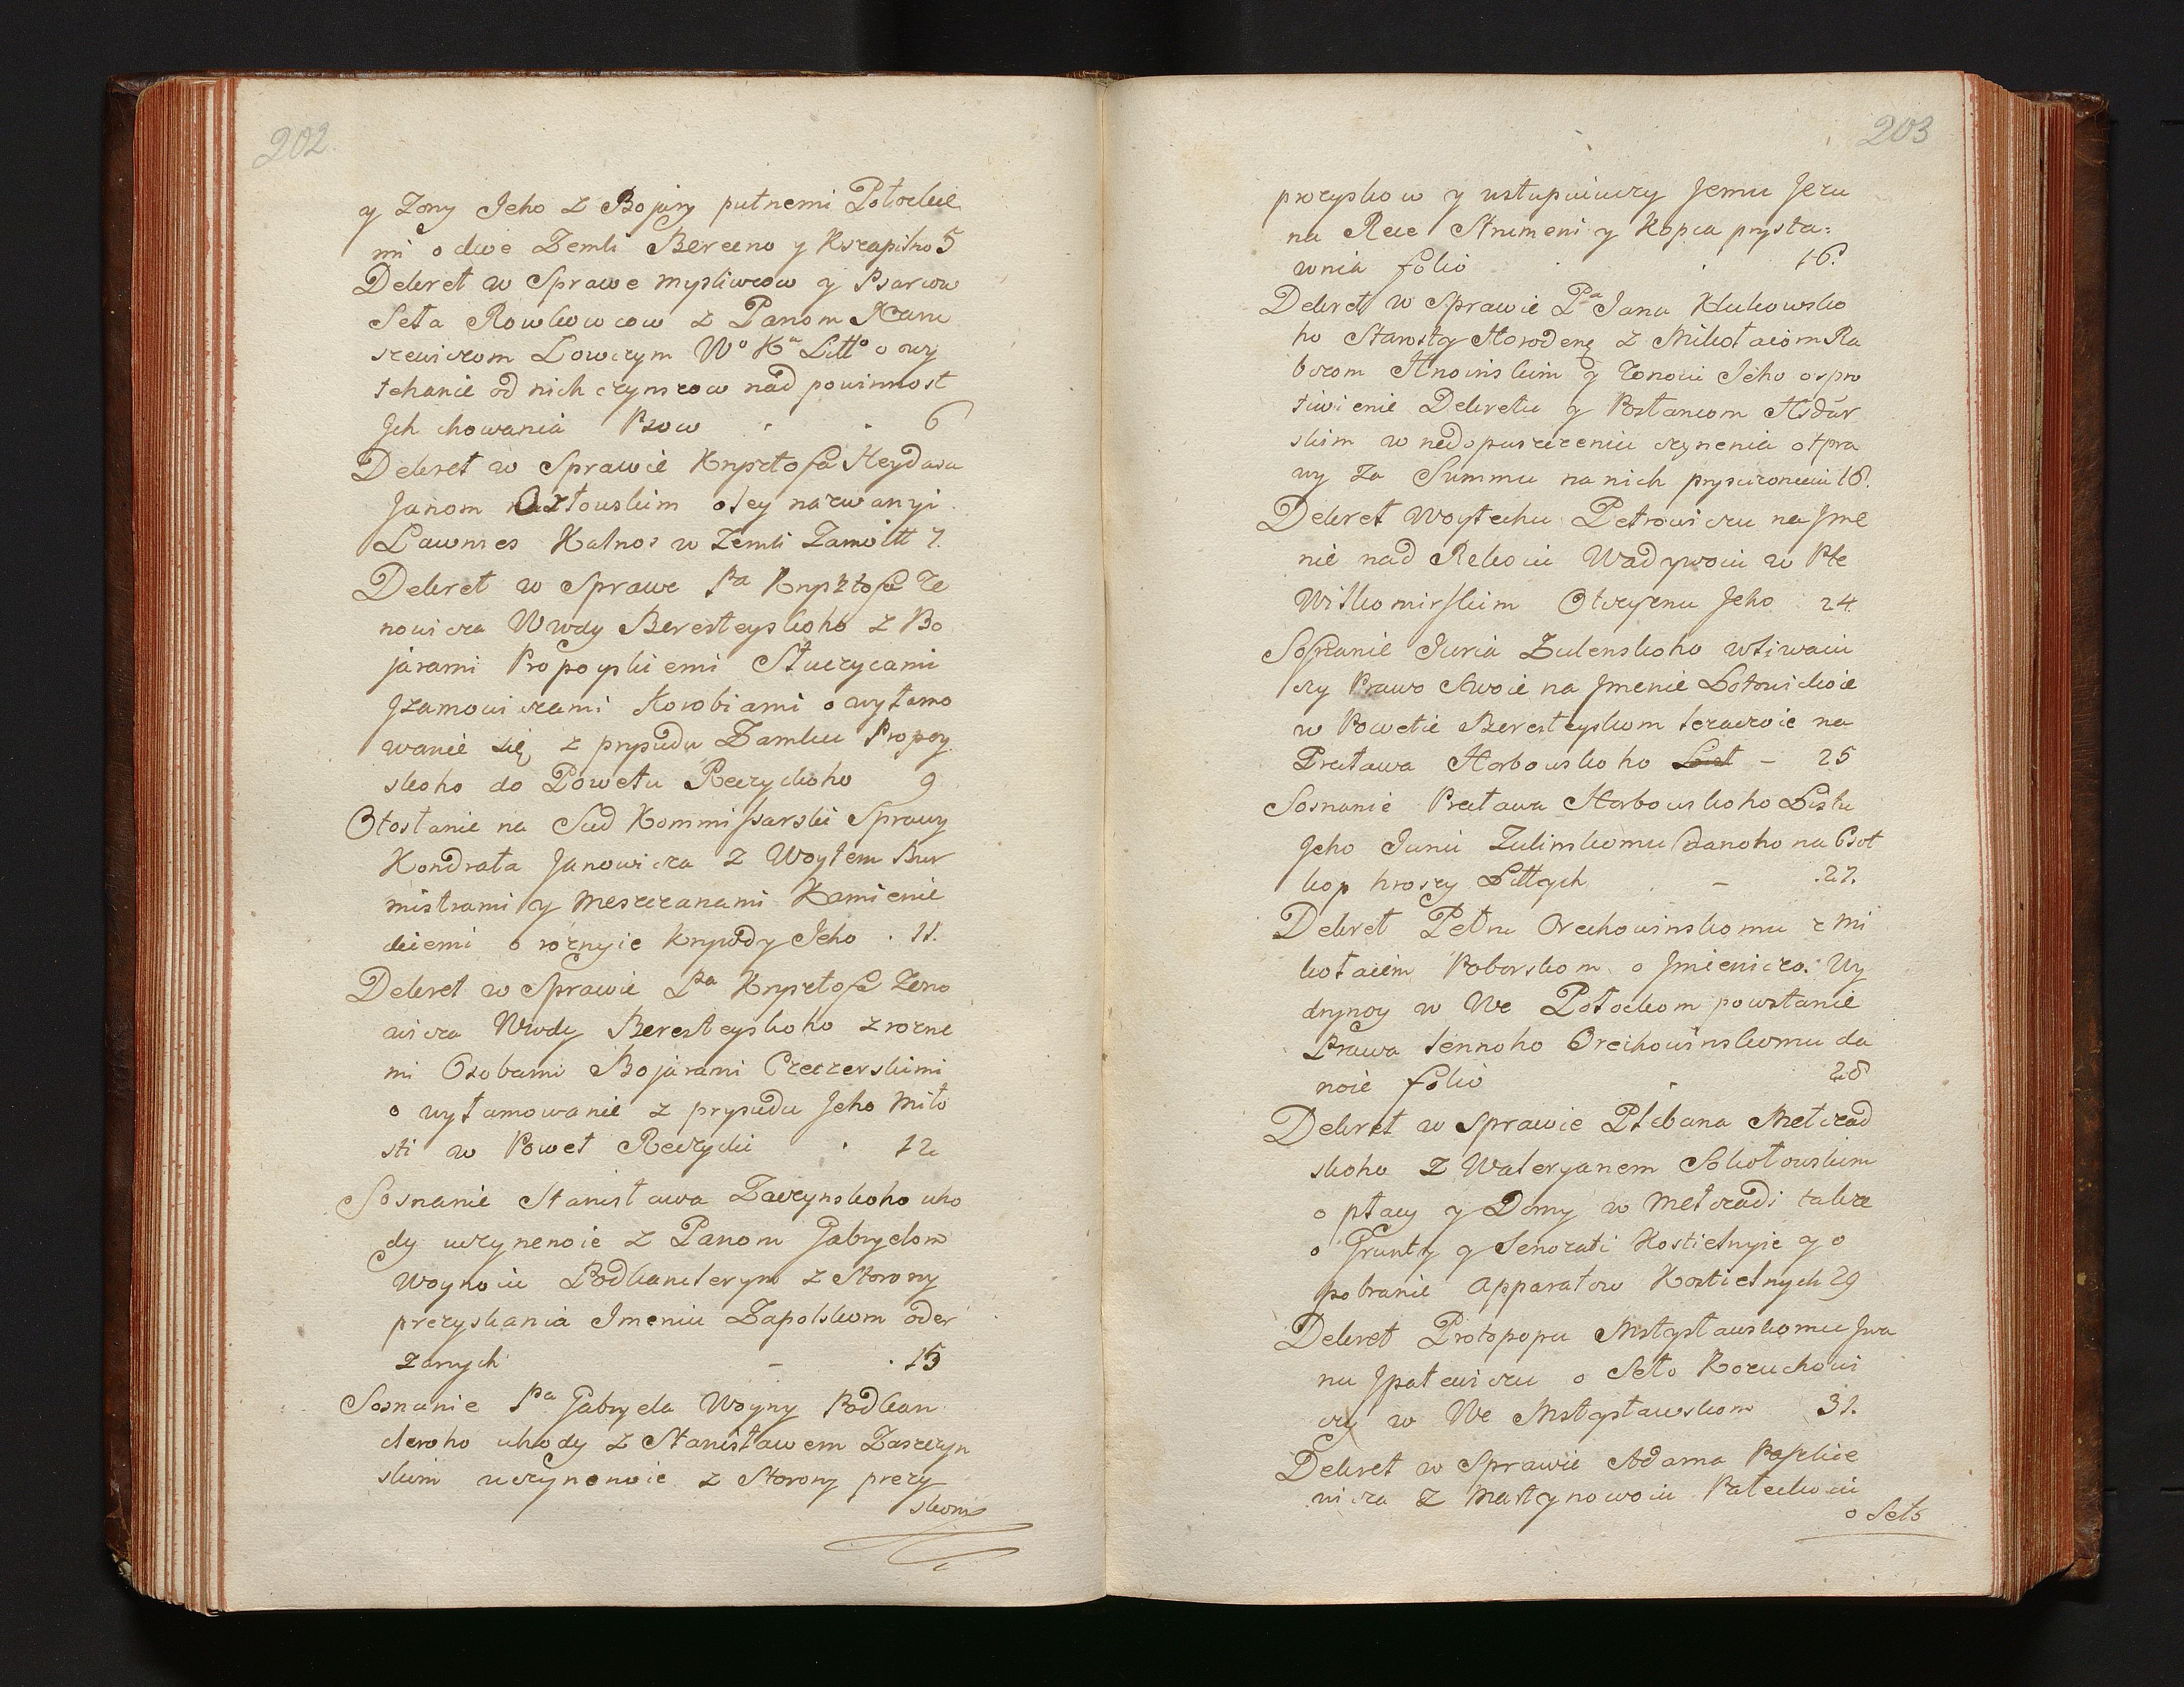 202
y Zony Jeho z Bojary putnemi Połockie
mi o dwe Zemli Bereżno y Kszapisno 5
Dekret w Sprawe mysliwcow y Psarcow
Seła Rowkowcow z Panom Naru
szewiczom Łowczym Wº Kª Littº o wy
tehanie od nich czynszow nad powinnost
Jch chowania Psow . . 6
Dekret w Sprawie Krysztofa Heydawa
Janom Ozłowskim otey nazwanyi
Ławnies Kalnos w Zemli Zamoitt 7.
Dekret w Sprawe Pa Krysztofa Ze
nowicza Wwdy Beresteyskoho z Bo
jarami Propoyskiemi Stuczycami
Jzamowiczami Korobiami o wyłamo
wanie się z prysudu Zamku Propoy
skoho do Powetu Reczyckoho 9
Otosłanie na Sud Kommissarski Sprawy
Kondrata Janowicza z Woytem Bur
mistrami y Meszczanami Kamienie
ckiemi o roznyie krywdy Jeho . 11.
Dekret w Sprawie Pza Krysztofa Zeno
wicza Wwdy Beresteyskoho z rozne
mi Osobami Bojarami Czeczerskimi
o wyłamowanie z prysudu Jeho Miło
sti w Powet Reczycki . 12
Soznanie Stanisława Zaczynskoho uho
dy uczynenoie z Panom Gabryelom
Woynoiu Podkanclerym z Storony
prezyskania Imeniu Zapolskom oder
zanych – . 15
Soznanie Pa Gabryela Woyny Podkan
cleroho uhody z Stanisławem Zaszczyn
skim uczynenoie z Storony prezy
skom
203
prozyskow y ustupuiuczy Jemu Jezu
na Rece Strumeni y Kopca prysta:
wnia folio . . 16.
Dekret w Sprawie Pª Jana Klukowsko
ho Starosty Horodenę z Mikołaiom Ra
bczom Hnoinskim y Zonoiu Jeho o spro
tiwienie Dekretu y Posłancom Hsdar
skim w nedopuszczeniu czynenia otpra
wy za Summu na nich prysuzonuiu 18.
Dekret Woytechu Petrowiczu na Jme
nie nad Rekoiu Wadywoiu w Pte
Wiłkomirskim Otczyznu Jeho 24.
Soznanie Juria Zulenskoho wliwaiu
czy Prawo Swoie na Jmenie Łotowickoie
w Powetie Beresteyskom lezaczoie na
Pretawa Horbowskoho – 25
Soznanie Pretawa Horbowskoho Listu
Jeho Juriu Zulinskomu danoho na 6sot
kop hroszy Littych . – .27.
Dekret Petru Orechowinskomu z Mi
kołaiem Poborskom o Jmieniczo. Uy
drynoy w We Połockom powstanie
Prawa lennoho Orechowinskomu da
noie folio . 28
Dekret w Sprawie Plebana Metczad
skoho z Waleryanem Sokołowskim
o płacy y Domy w Metczadi takze
o Grunty y Senozati Kostielnyie y o
pobranie Apparatow Kostielnych 29
Dekret Protopopu Mstysławskomu Jwa
nu Jpatewiczu o Seło Kozuchowi
czy w We Mstysławskom 31.
Dekret w Sprawie Adama Paszkie
wicza z Martynowoiu Pałuckoiu
o Seło